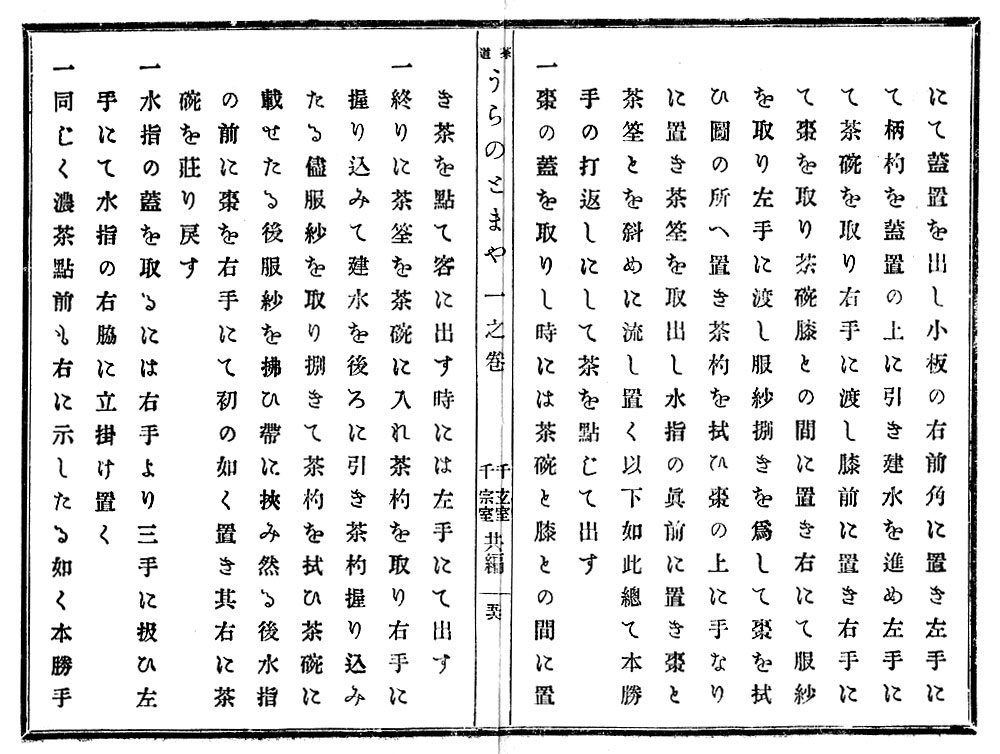 にて蓋置を出し小板の右前角に置き左手に
て柄杓を蓋置の上に引き建水を進め左手に
て茶碗を取り右手に渡し膝前に置き右手に
て棗を取り茶碗膝との間に置き右にて服紗
を取り左手に渡し服紗捌きを爲して棗を拭
ひ圖の所へ置き茶杓を拭ひ棗の上に手なり
に置き茶筌を取出し水指の眞前に置き棗と
茶筌とを斜めに流し置く以下如此總て本勝
手の打返しにして茶を點じて出す
一棗の蓋を取りし時には茶碗と膝との間に置
茶道うらのとまや 一之卷 千玄室 千宗室 共編
き茶を點て客に出す時には左手にて出す
一終りに茶筌を茶碗に入れ茶杓を取り右手に
握り込みて建水を後ろに引き茶杓握り込み
たる儘服紗を取り捌きて茶杓を拭ひ茶碗に
載せたる後服紗を拂ひ帶に挾み然る後水指
の前に棗を右手にて初の如く置き其右に茶
碗を莊り戻す
一水指の蓋を取るには右手より三手に扱ひ左
手にて水指の右脇に立掛け置く
一同じく濃茶點前も右に示したる如く本勝手